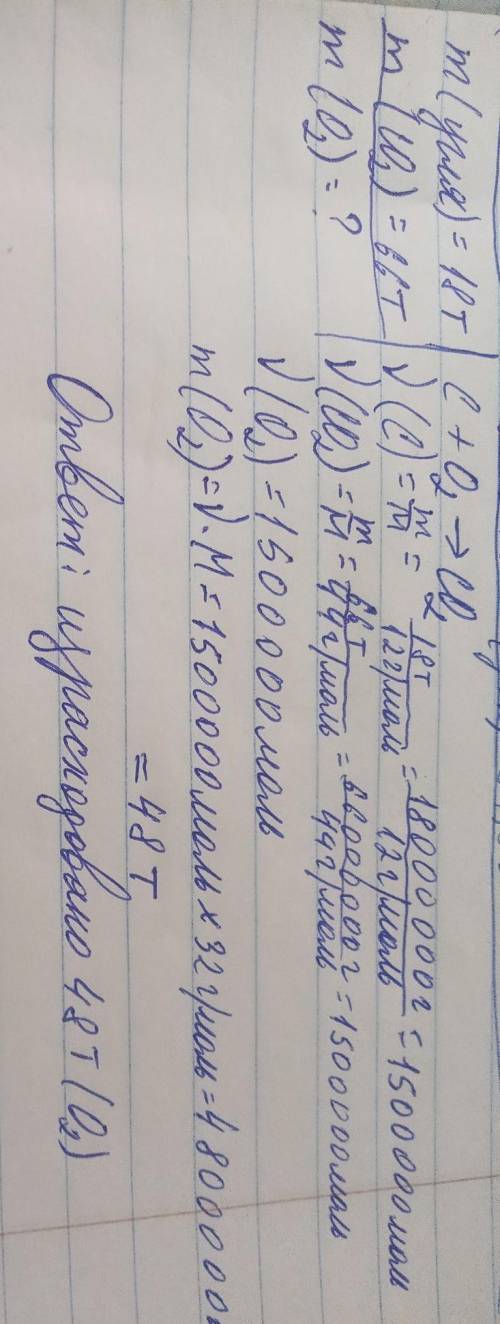 m(угля) = 18т
m(CO₂) = 66т
m(O₂) = ?
C + O₂ → CO₂
ν(C) = m/M = 18т/12г/моль = 18000000г/12г/моль = 1500000моль
ν(CO₂) = m/M = 66т/44г/моль = 66000000г/44г/моль = 1500000моль
ν(O₂) = 1500000моль
m(O₂) = ν·M = 1500000моль x 32г/моль = 4800000
= 48т
Ответ: израсходовано 48т (O₂)